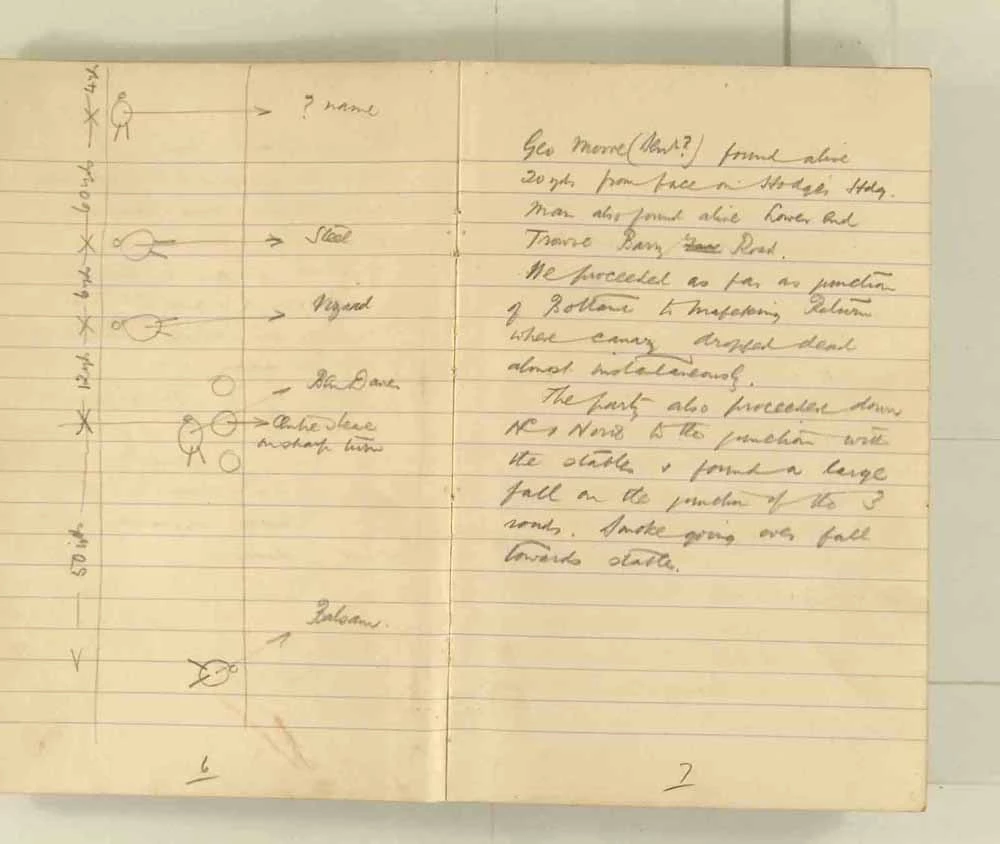 4 yds
? name
60 yds
Steel
6 yds
Vizard
12 yds
Ben Davies
on sharp turn
50 yds
6
Geo Moore (Dend?) found alive
20 yds from face on Hodges Hdg.
Man also found alive Lower End
Road.
We proceeded as far as junction
of Bottoms to Mafeking Return
where canary dropped dead
almost instantaneously.
The party also proceeded down
No 1 North to the junction with
the stables & found a large
fall on the junction of the 3
roads. Smoke going over fall
towards stables.
7